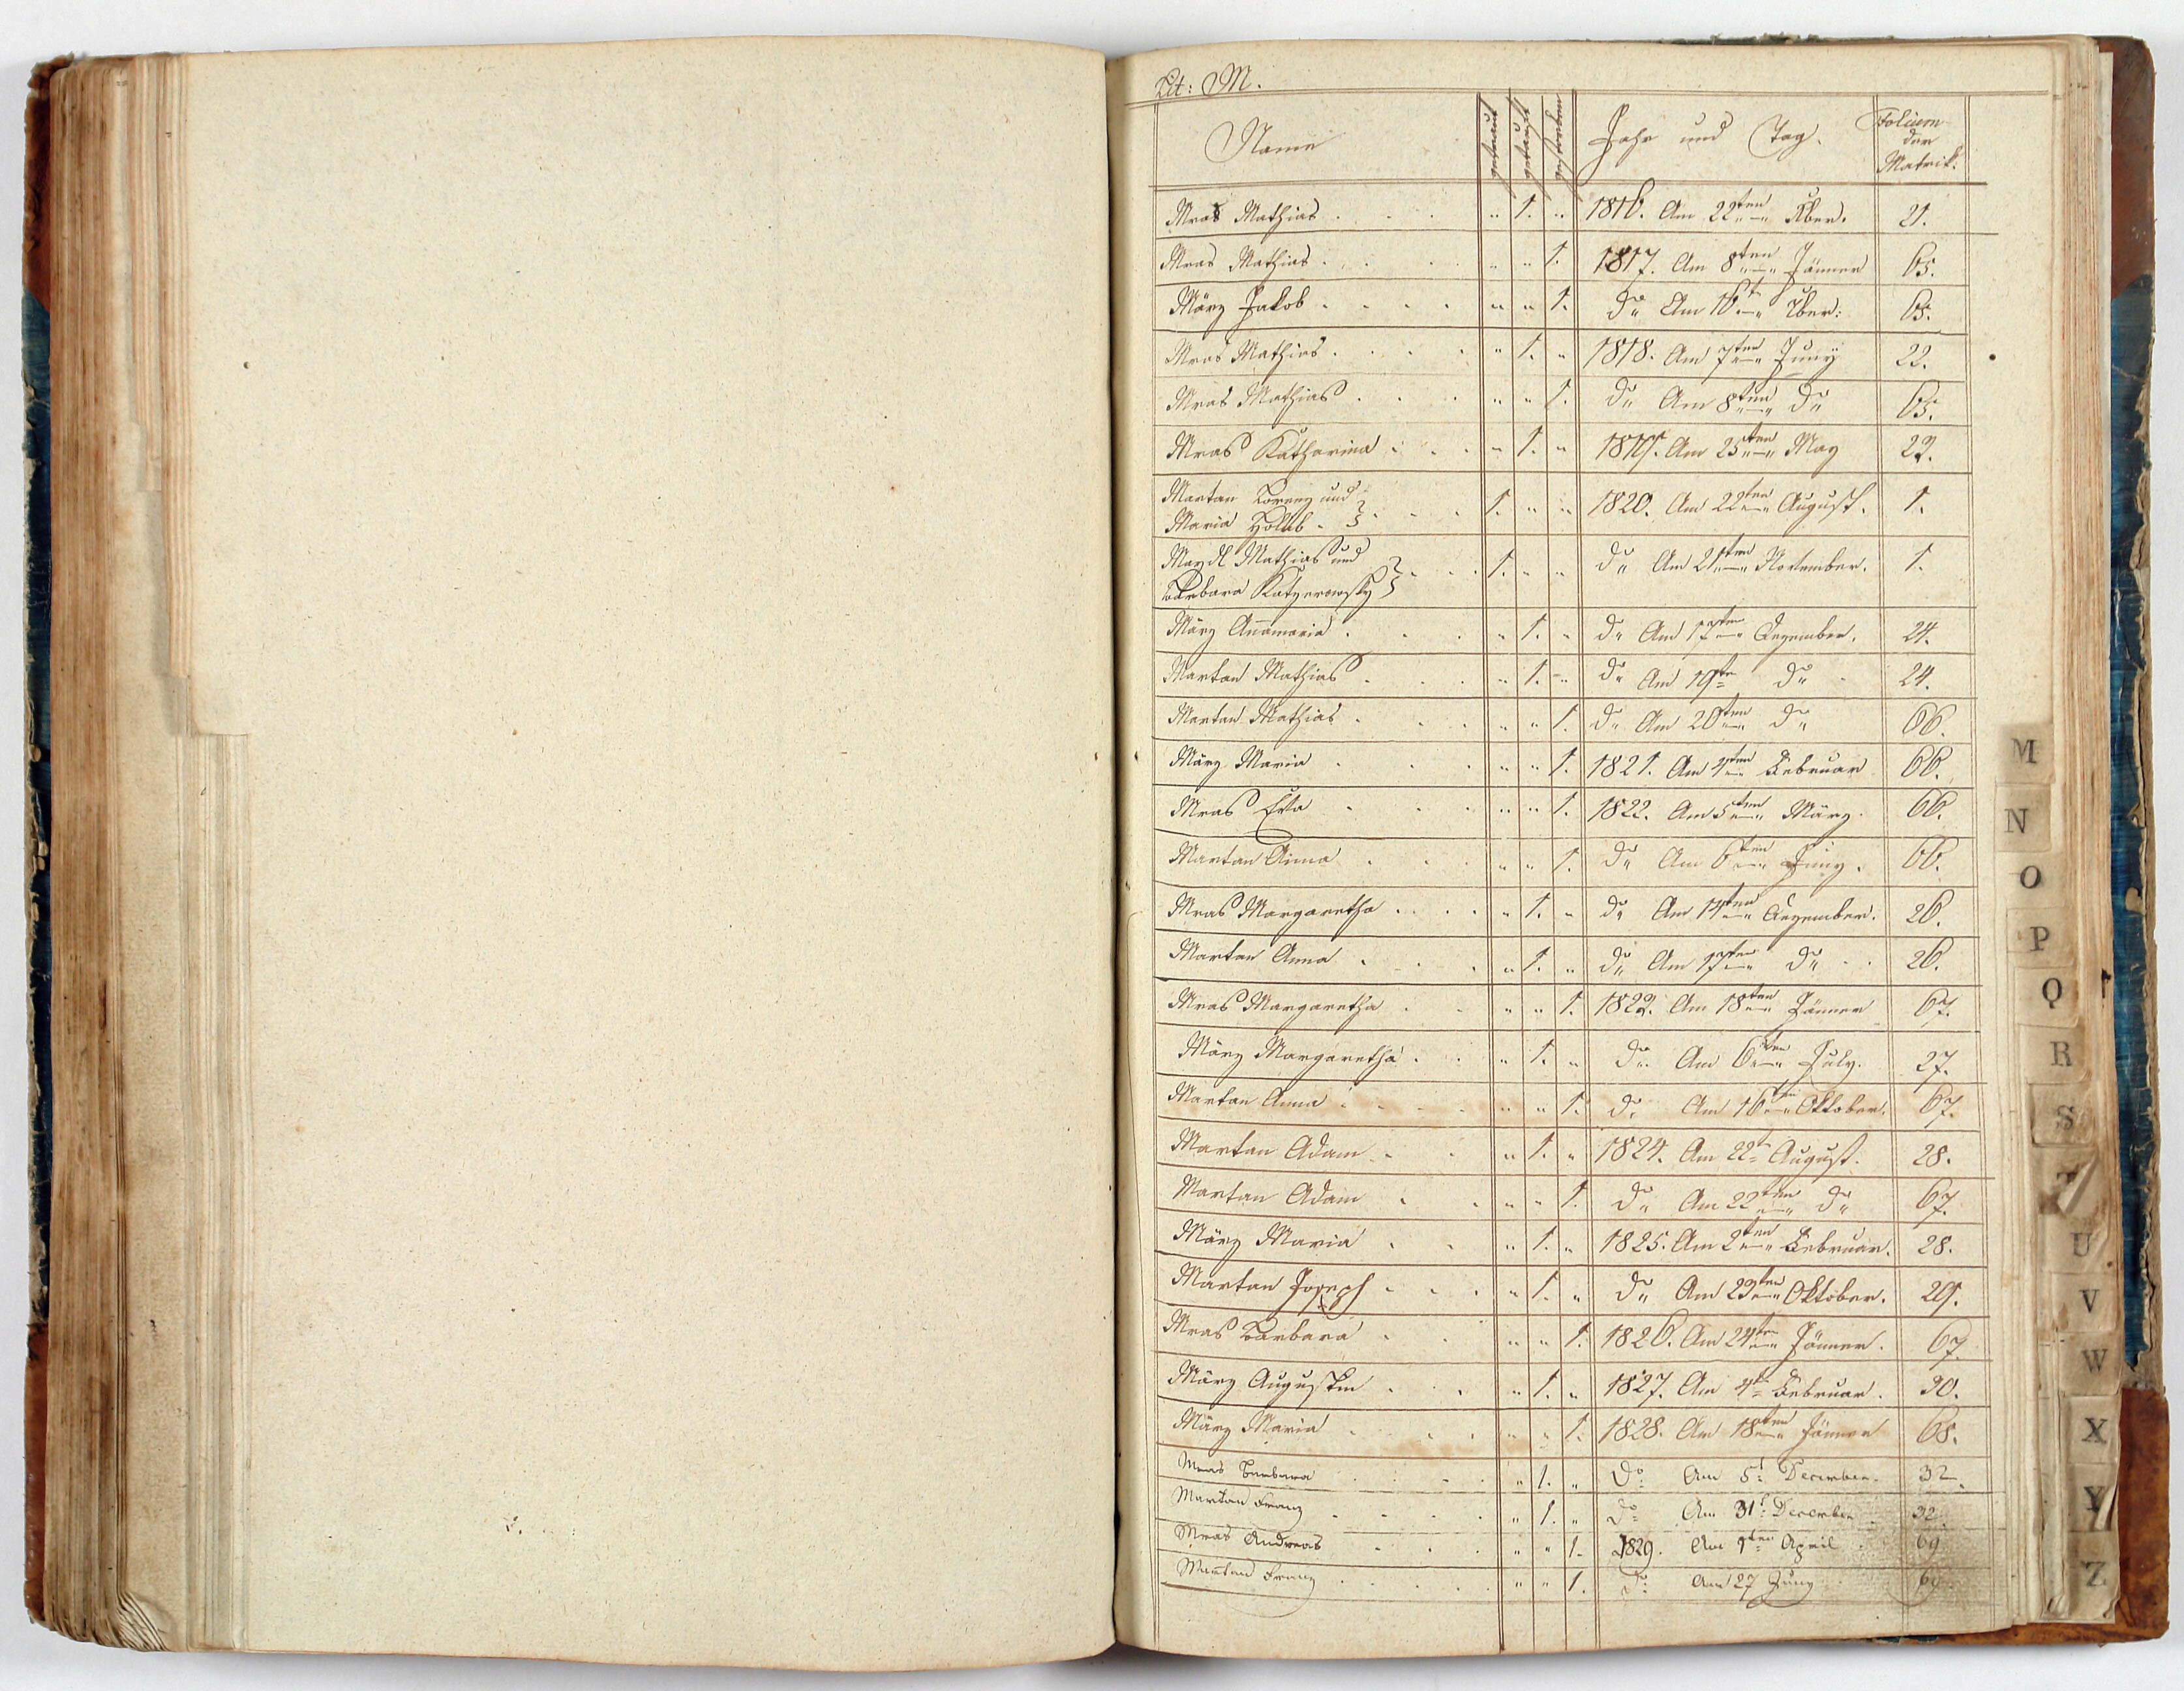 Lit: M.
Name getraut getauft gestorben Jahr und Tag. Folium der Matrik:
Mras Mathias . . . " 1. " 1816. Am 22ten 8ber. 21.
Mras Mathias . . . " " 1. 1817. Am 8ten Jänner 65.
März Jakob . . . . " " 1. do Am 16t 65.
Mras Mathias . . . . " 1. " 1818. Am 7ten Juny 22.
Mras Mathias . . . " " 1. do Am 8ten do 65.
Mras Katharina . . . " 1. " Am 25ten May
Martan Lorenz und
Maria Holub . } . . . 1. " " 1820. Am 22ten August. 1.
Maydl Mathias und
Barbara Katzerowsky } . . . 1. " " do Am 21ten November. 1.
März Annamaria . . . " 1. " do Am 17ten Dezember. 24.
Martan Mathias . . . " 1. " do Am 19ten do 24.
Martan Mathias . . . " " 1. do Am 20ten do 66.
März Maria . . . " " 1. 1821. Am 4ten Februar 66.
Mras Eva . . . " " 1. 1822. Am 5ten März. 66.
Martan Anna . . . " " 1. do Am 6ten Juny. 66.
Mras Margaretha . . . . " 1. " do Am 14ten Dezember. 26.
Martan Anna . . . " 1. " do Am 17ten do . . 26.
Mras Margaretha . . " " 1. 1823. Am 18ten Jänner 67.
März Margaretha . . " 1. " do Am 6ten July. 27.
Martan Anna . . . . " " 1. do Am 16ten Oktober. 67.
Martan Adam . . " 1. " 1824. Am 22t August. 28.
Martan Adam . . " " 1. do Am 22ten do 67.
März Maria . . " 1. " 1825. Am 2ten Februar. 28.
Martan Joseph . . . " 1. " do Am 23ten Oktober. 29.
Mras Barbara . . " " 1. 1826. Am 24ten Jänner. 67.
März Augustin . . " 1. " 1827. Am 4t Februar. 30.
März Maria . . . . " " 1. 1828. Am 18ten Jänner 68.
Mras Barbara . . . . " 1. " do Am 5t December. 32.
Martan Franz . . . . " 1. " do Am 31t December 32.
Mras Andreas . . . " " 1. 1829. Am 1ten April . 69
Martan Franz . . . . " " 1. do Am 27 Juny 69
M
N
O
P
Q
R
S
T
U
V
W
X
Y
Z